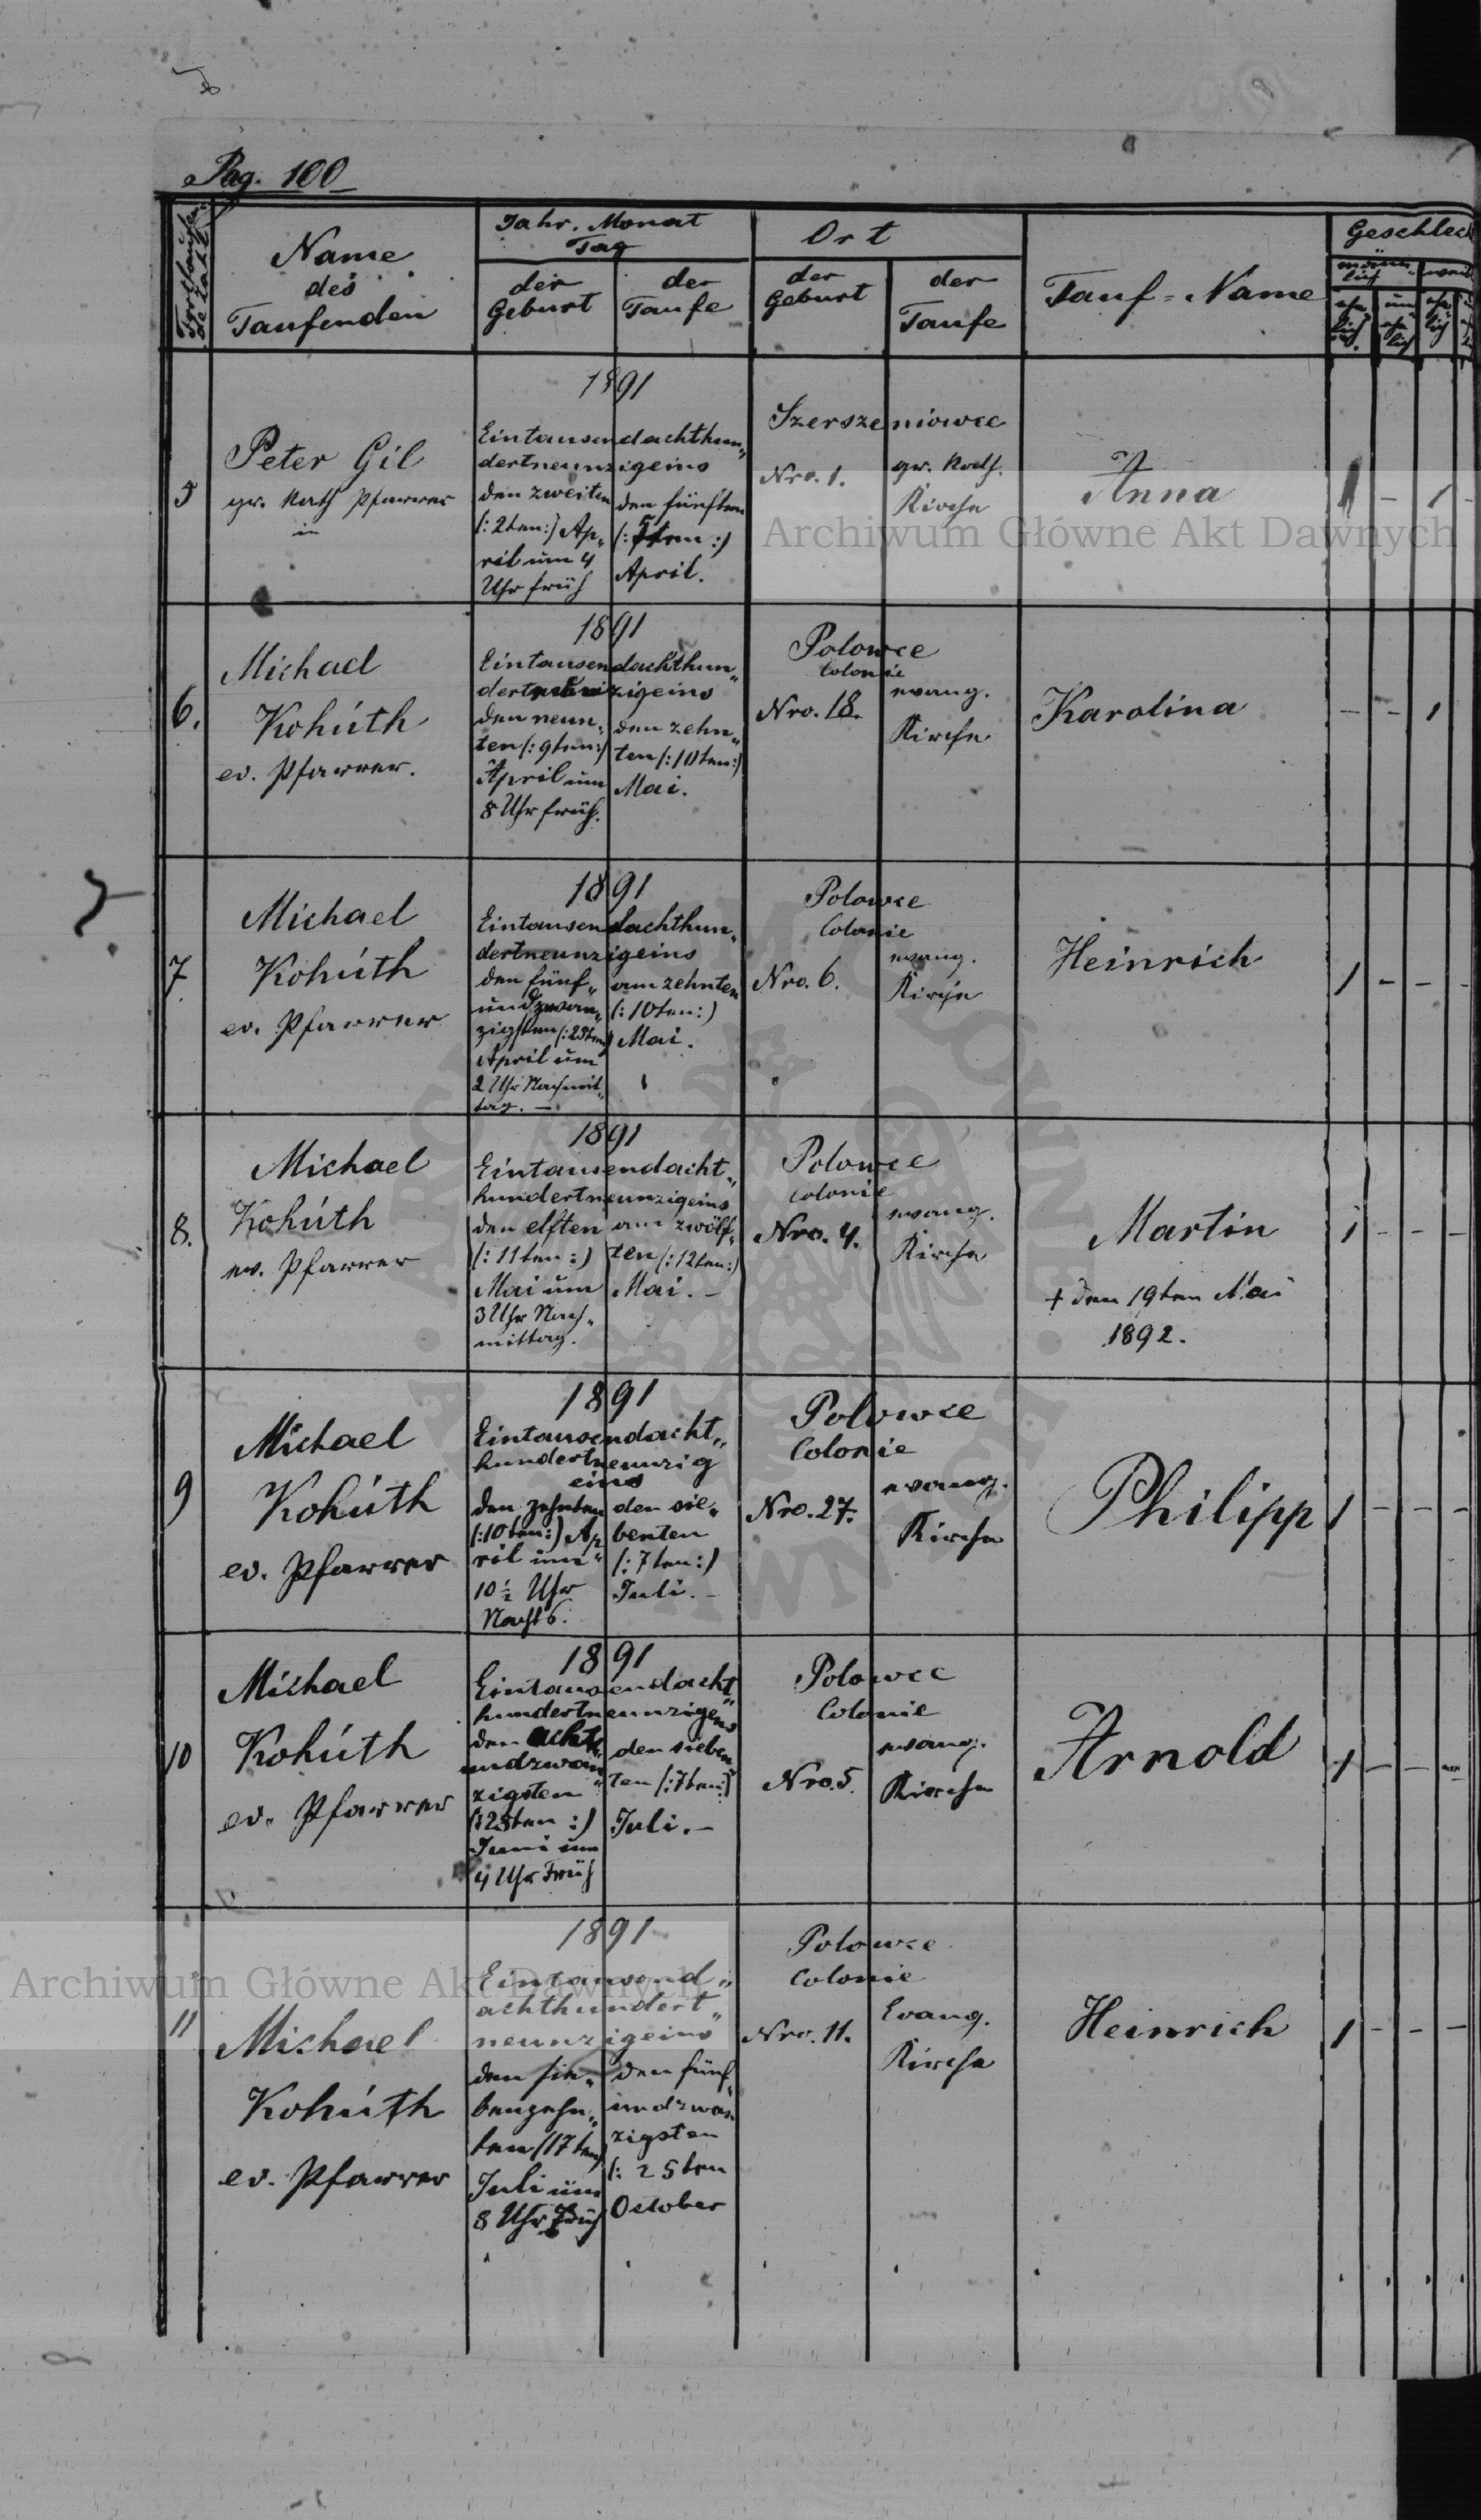 Pag. 100
Fortlaufende Zahl
Name
des
Taufenden
Jahr. Monat
Tag
der
Geburt
der
Taufe
Ort
der
Geburt
der
Taufe
Tauf-Name
Geschlech
männ
lich
weib
ehe
lich
un
ehe
lich
ehe
lich
5
Peter Gil
gr. Kath Pfarrer
in
1891
Eintausendachthun„
dertneunzigeins
den zweiten
(: 2ten :) Ap„
ril um 4
Uhr früh
den fünften
(: 5ten :)
April.
Szerszeniowce
Nro. 1.
gr. Kath.
Kirche
Anna
1 - 1 -
6.
Michael
Kohúth
ev. Pfarrer.
1891
Eintausendachthun„
dertneunzigeins
den neun„
ten (: 9ten :)
April um
8 Uhr früh.
den zehn„
ten (: 10ten :)
Mai.
Polowce
Colonie
Nro. 18.
evang.
Kirche
Karolina
- - 1
7
Michael
Kohúth
ev. Pfarrer
1891
Eintausendachthun„
dertneunzigeins
den fünf„
undzwan„
zigsten (: 25ten)
April um
2 Uhr Nachmit„
tag. —
am zehnten
(: 10ten :)
Mai.
Polowce
Colonie
Nro. 6.
evang.
Kirche
Heinrich
1 - - -
8.
Michael
Kohúth
ev. Pfarrer
1891
Eintausendacht„
hundertneunzigeins
den elften
(: 11ten :)
Mai um
3 Uhr Nach„
mittag.
am zwölf„
ten (: 12ten :)
Mai. -
Polowce
Colonie
Nro. 4.
evang.
Kirche
Martin
+ den 19ten Mai
1892.
1 - - -
9
Michael
Kohúth
ev. Pfarrer
1891
Eintausendacht„
hundertneunzig
eins
den zehnten
(: 10ten :) Ap„
ril um
10 ½ Uhr
Nachts.
den sie„
benten
(: 7ten :)
Juli. -
Polowce
Colonie
Nro. 27.
evang.
Kirche
Philipp
1 - - -
10
Michael
Kohúth
ev. Pfarrer
1891
Eintausendacht„
hundertneunzigeins
den acht„
undzwan„
zigsten
(: 28ten :)
Juni um
4 Uhr Früh
den sieben„
ten (: 7ten :)
Juli. -
Polowce
Colonie
Nro. 5.
evang.
Kirche
Arnold
1 - - -
11
Michael
Kohúth
ev. Pfarrer
1891
Eintausend„
achthundert„
neunzigeins
den sie„
benzehn„
ten (17ten)
Juli um
8 Uhr Früh
den fünf„
undzwan„
zigsten
(: 25ten
October
Polowce
Colonie
Nro. 11.
Evang.
Kirche
Heinrich
1 - - -
Archiwum Główne Akt Dawnych
Archiwum Główne Akt Dawnych